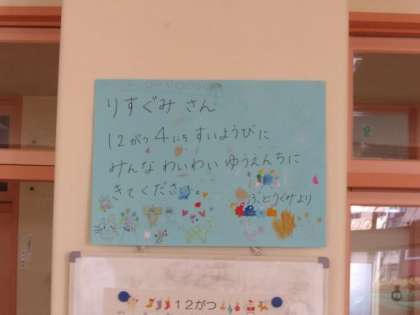 りすぐみ さん
12がつ 4にち すいようびに
みんな わいわい ゆうえんちに
きてください。
より
12がつ